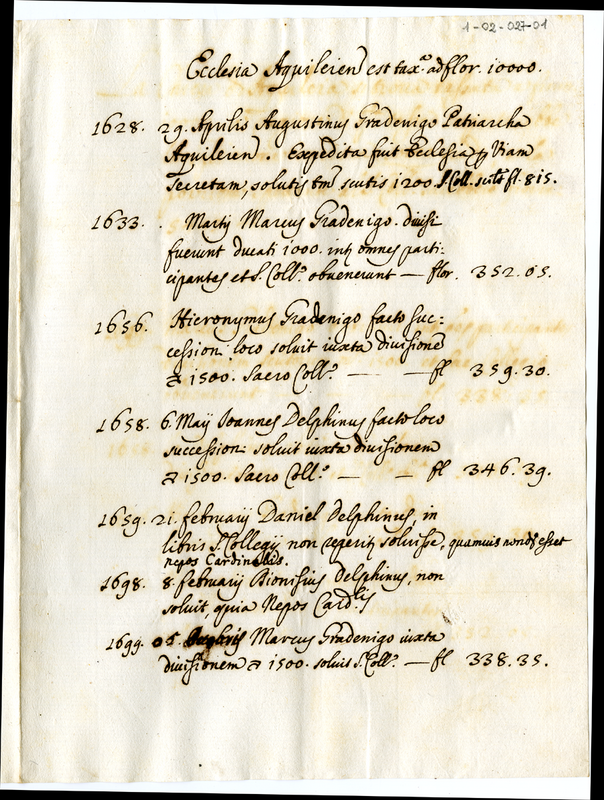 1-02-027-01
Ecclesia Aquileien est tax.ª ad flor. 10000.
1628. 29. Aprilis Augustinus Gradenigo Patriarcha
Aquileien. Expedita fuit Ecclesia p Viam
secretam, solutis tm̃ scutis 1200. S. Coll. scilt fl. 815.
1633. . Martij Marcus Gradenigo. divisi
fuerunt ducati 1000. int omnes parti:
cipantes et S. Coll.º obuenerunt — flor. 352.05.
1656. Hieronymus Gradenigo facto suc:
cession. loco soluit iuxta divisione
a 1500. Sacro Coll.º — — fl 359.30.
1658. 6. Maij Ioannes Delphinus facto loco
succession. soluit iuxta divisionem
a 1500. Sacro Coll.º — — fl 346.39.
1659. 21. februarij Daniel Delphinus, in
libris S. Collegij non regerit soluisse, quamuis nond esset
nepos Cardinalis.
1698. 8. februarij Dionisius Delphinus, non
soluit, quia Nepos Card.lis
1699. 05. Marcus Gradenigo iuxta
divisionem a 1500. soluit S. Coll.º — fl 338.35.